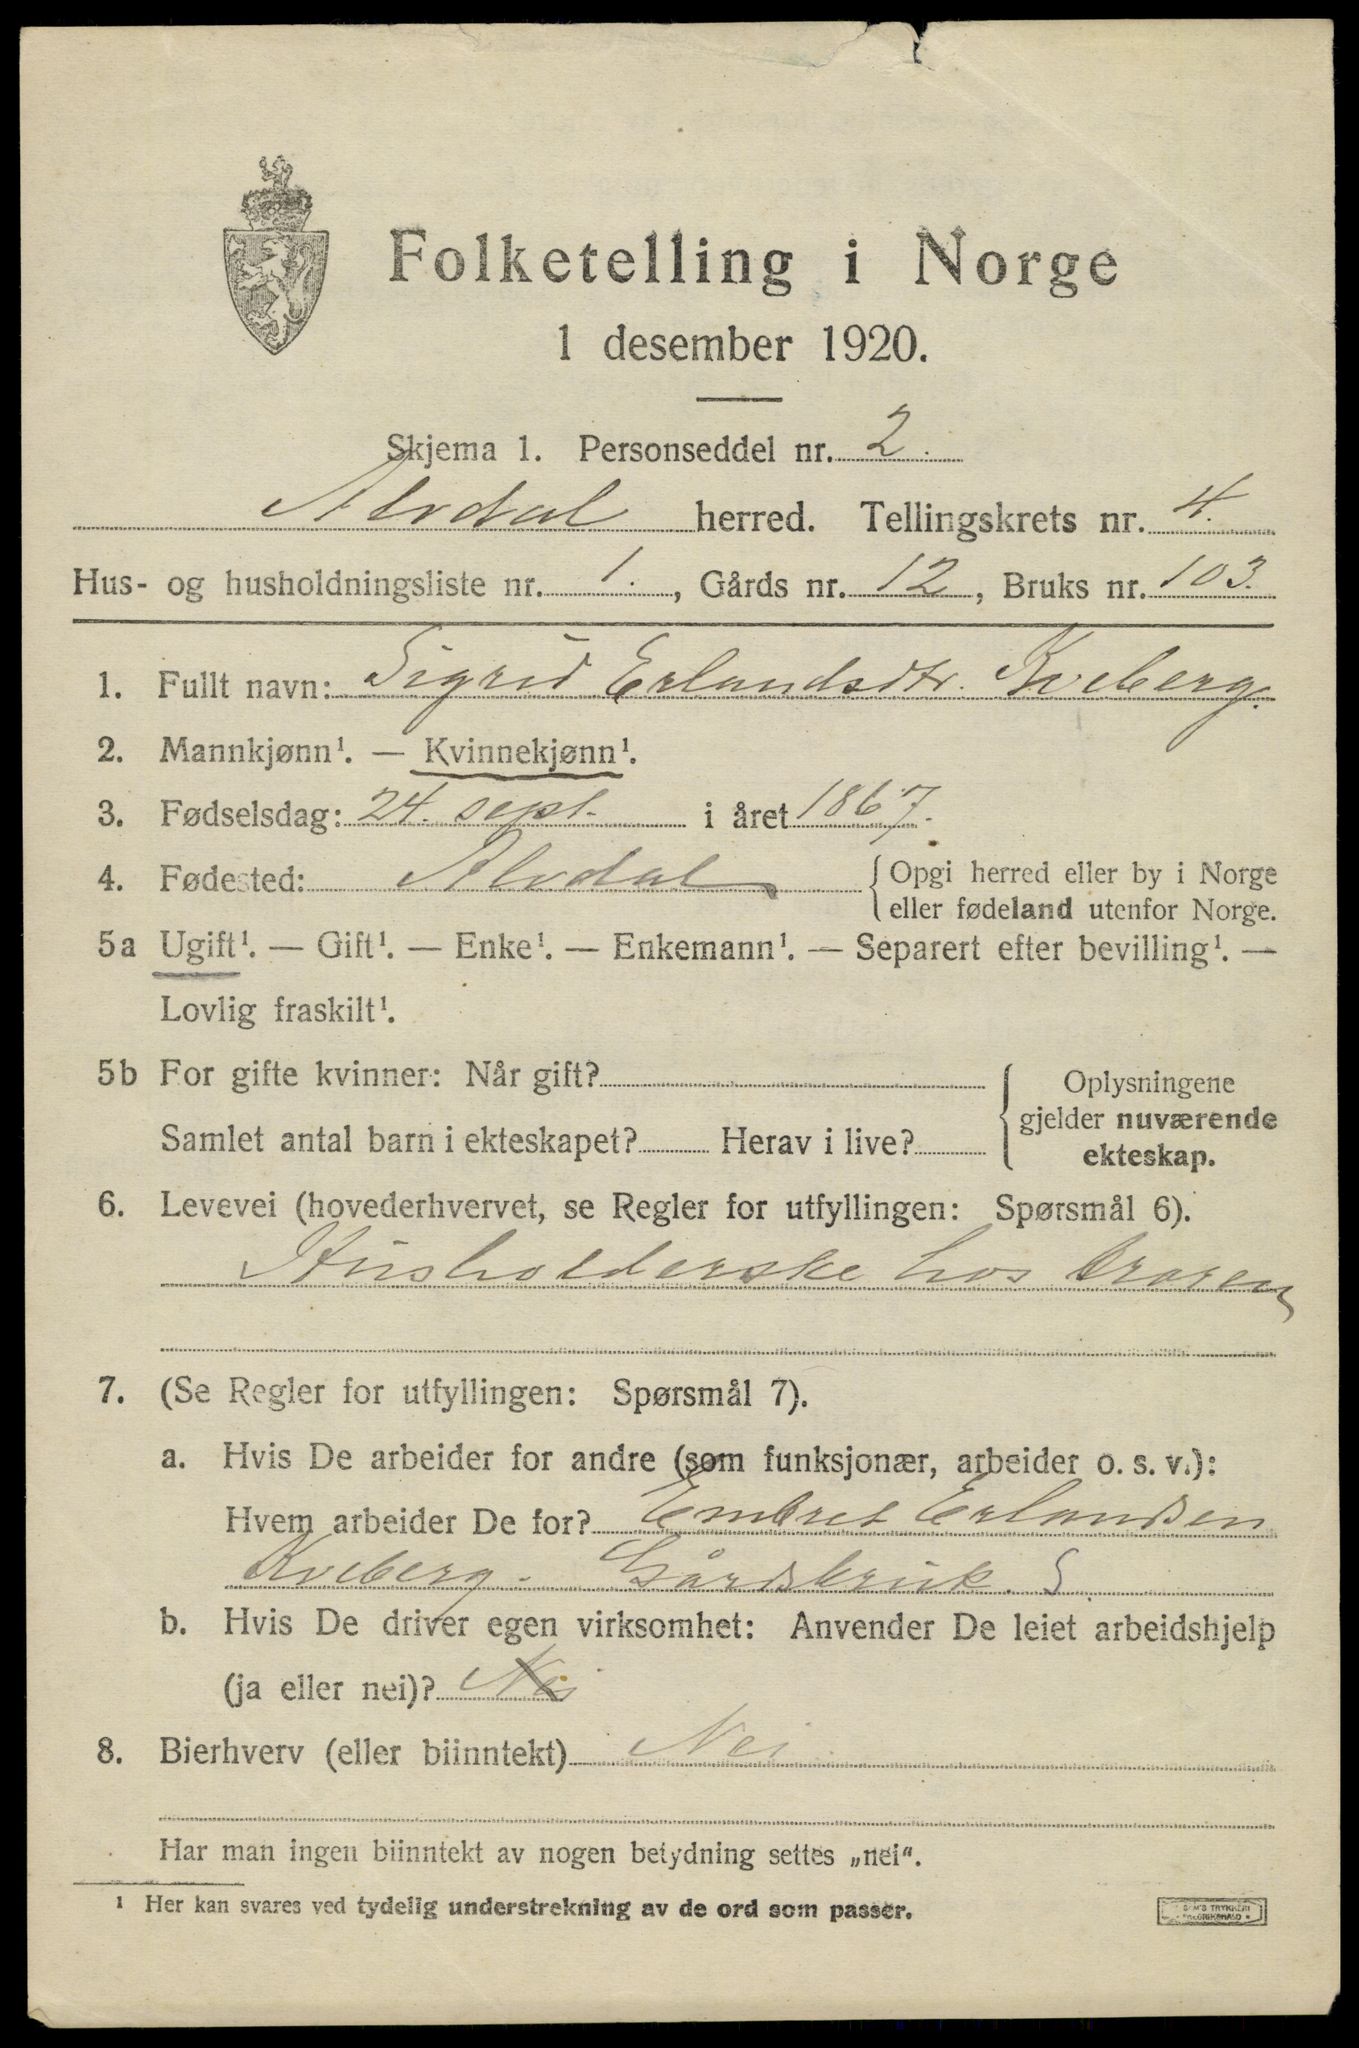 Folketelling i Norge
1 desember 1920.
Skjema 1. Personseddel nr. 2.
Alvdal herred. Tellingskrets nr. 4.
Hus- og husholdningsliste nr. 1. , Gårds nr. 12 , Bruks nr. 103.
1. Fullt navn: Sigrid Erlandsdtr. Kveberg.
2. Mannkjønn¹. — Kvinnekjønn¹.
3. Fødselsdag: 24. sept. i året 1867.
4. Fødested: Alvdal { Opgi herred eller by i Norge
eller fødeland utenfor Norge.
5a Ugift¹. — Gift¹. — Enke¹. — Enkemann¹. — Separert efter bevilling¹. —
Lovlig fraskilt¹.
5b For gifte kvinner: Når gift? { Oplysningene
gjelder nuværende
Samlet antal barn i ekteskapet? Herav i live?
ekteskap.
6. Levevei (hovederhvervet, se Regler for utfyllingen: Spørsmål 6).
Husholderske hos broren
7. (Se Regler for utfyllingen: Spørsmål 7).
a. Hvis De arbeider for andre (som funksjonær, arbeider o. s. v.):
Hvem arbeider De for? Embret Erlandsen
Kveberg. Gårdsbruk. S
b. Hvis De driver egen virksomhet: Anvender De leiet arbeidshjelp
(ja eller nei)? Nei
8. Bierhverv (eller biinntekt) Nei.
Har man ingen biinntekt av nogen betydning settes „nei“.
¹ Her kan svares ved tydelig understrekning av de ord som passer.
TRYKKERI